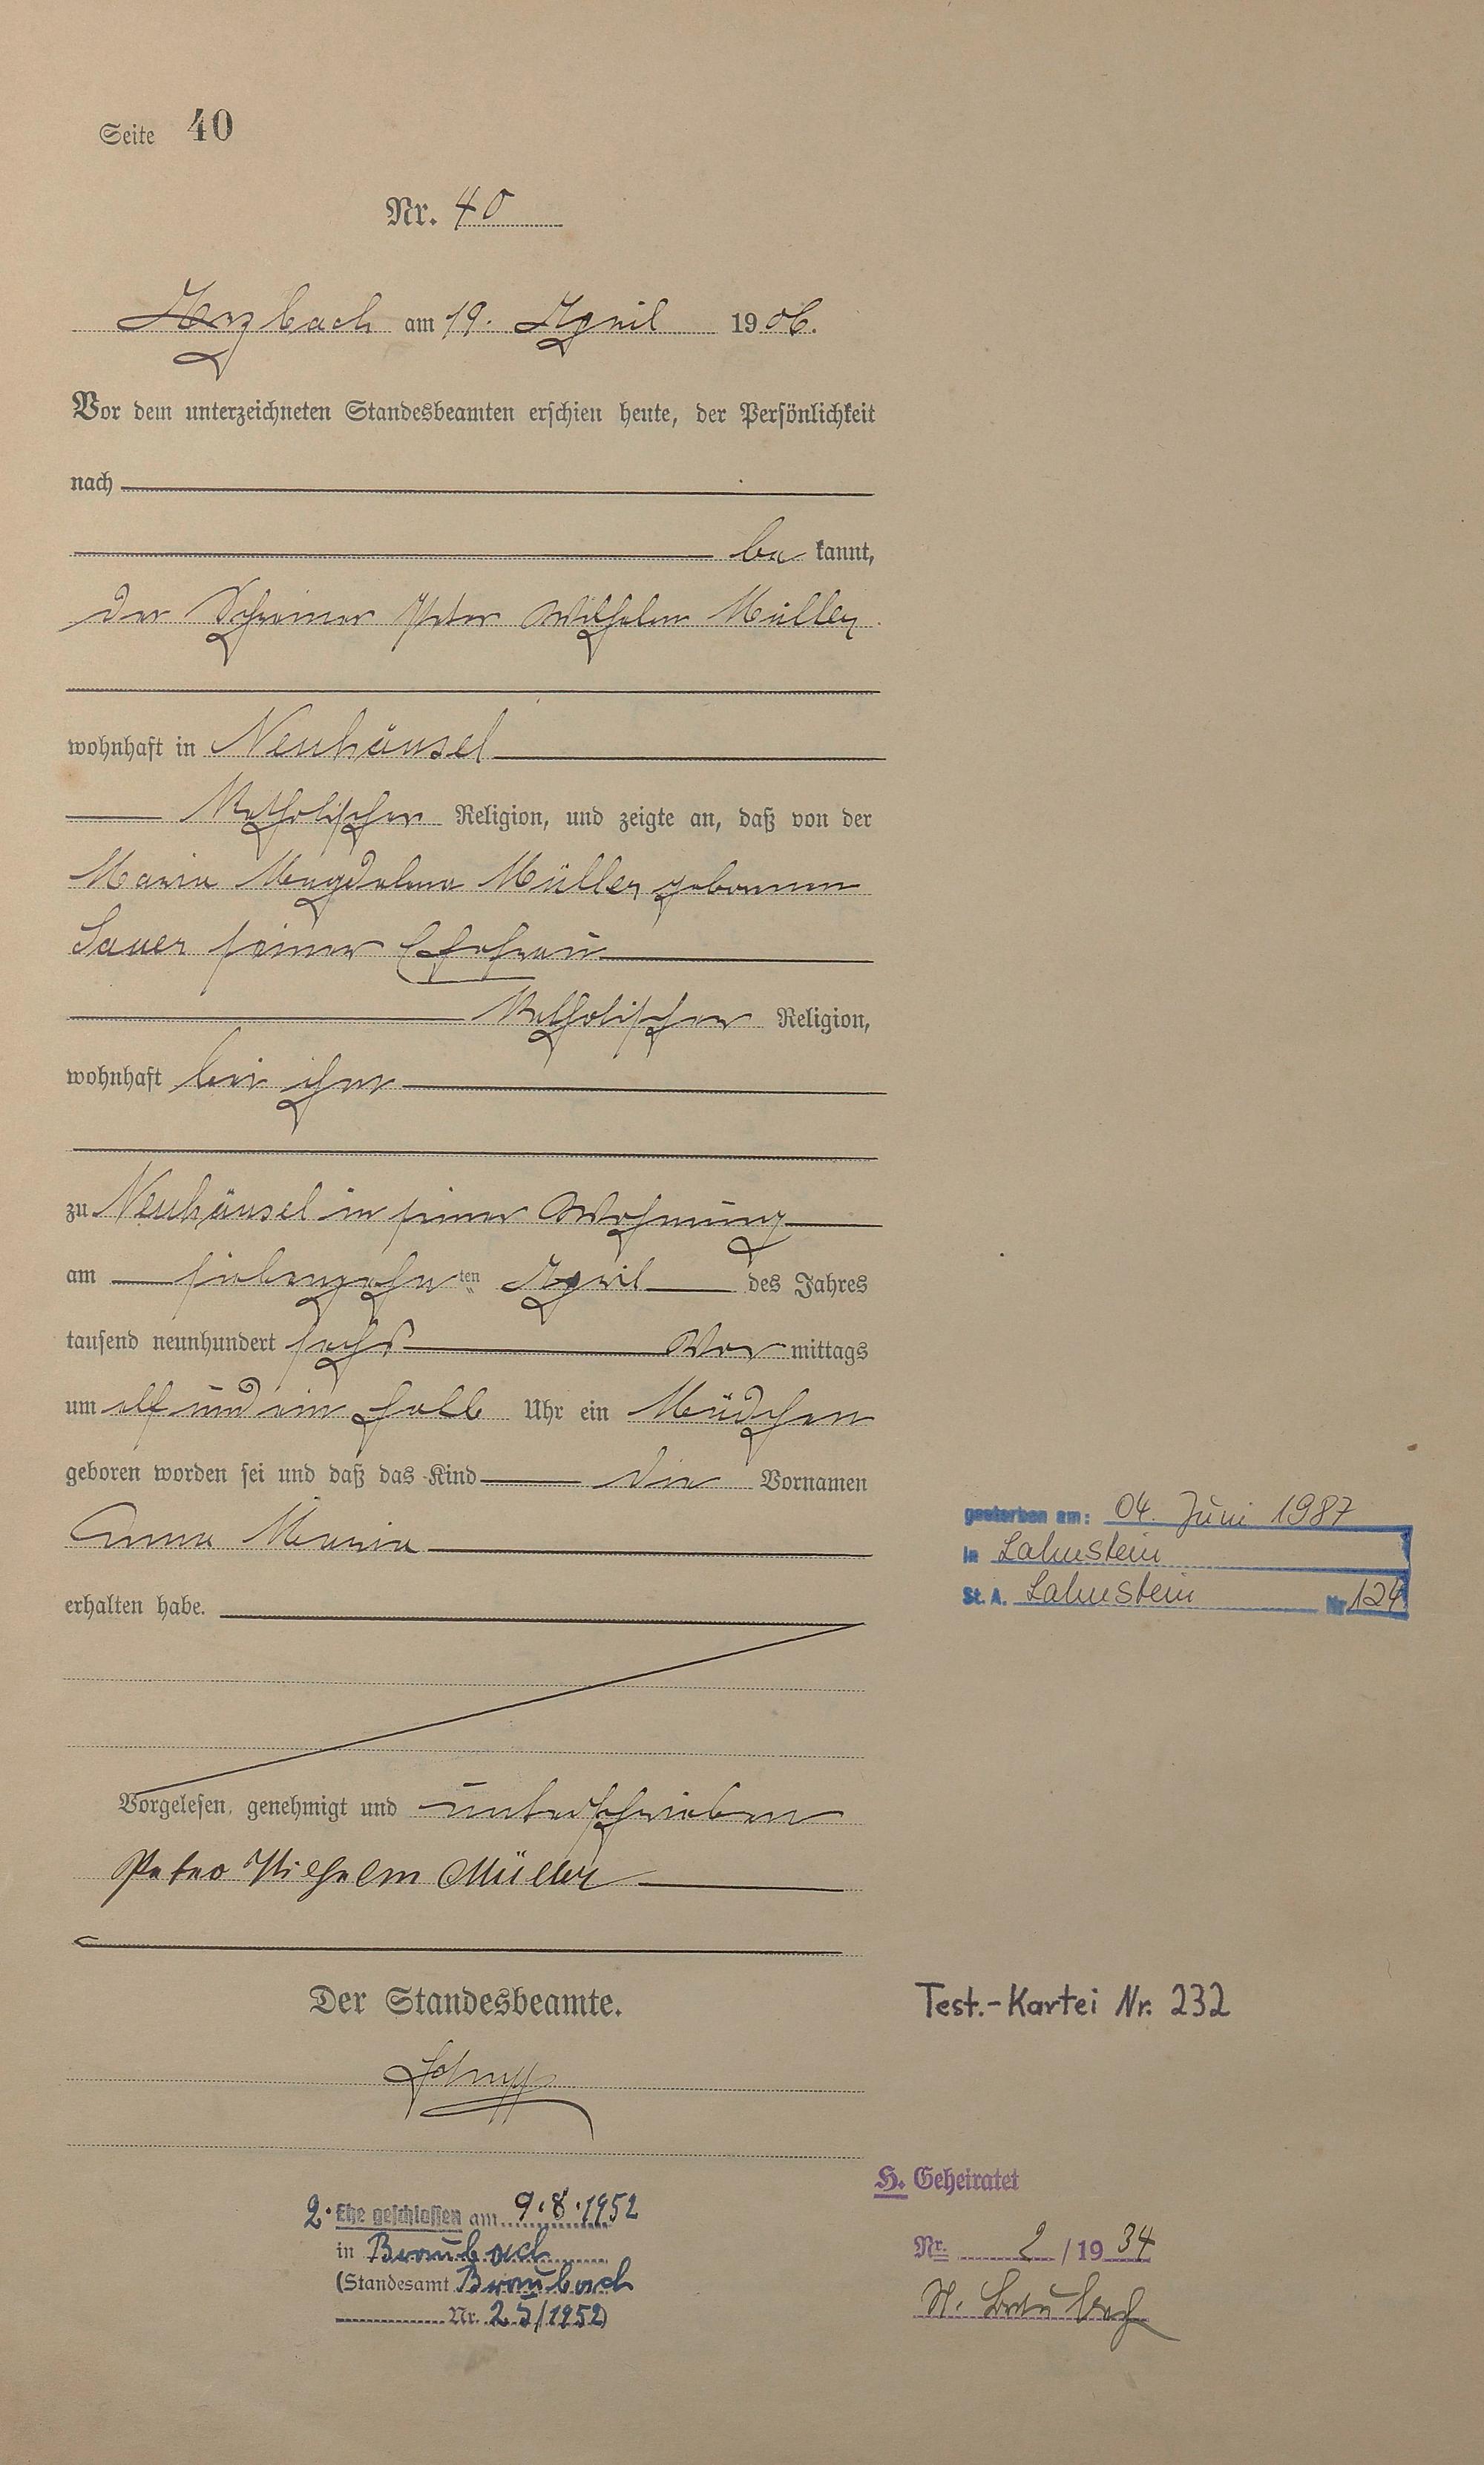 Seite 40
Nr. 40
Arzbach am 19. April 1906.
Vor dem unterzeichneten Standesbeamten erschien heute, der Persönlichkeit
nach
be kannt,
der Schreiner Peter Wilhelm Müller
wohnhaft in Neuhäusel
Katholischer Religion, und zeigte an, daß von der
Maria Magdalena Müller geborenen
Sauer seiner Ehefrau
Katholischer Religion,
wohnhaft bei ihm
zu Neuhäusel in seiner Wohnung
am siebenzehnten April des Jahres
tausend neunhundert sechs Vor mittags
um elf und ein halb Uhr ein Mädchen
geboren worden sei und daß das Kind die Vornamen
Anna Maria
erhalten habe.
gestorben am: 04. Juni 1987
in Lahnstein
St. A. Lahnstein Nr 124
Vorgelesen, genehmigt und unterschrieben
Peter Wilhelm Müller
Der Standesbeamte.
Test.-Kartei Nr. 232
H. Geheiratet
Nr. 2 / 1934
St. Braubach
2. Ehe geschlossen am 9.8.1952
in Braubach
(Standesamt Braubach
Nr. 25/1952)